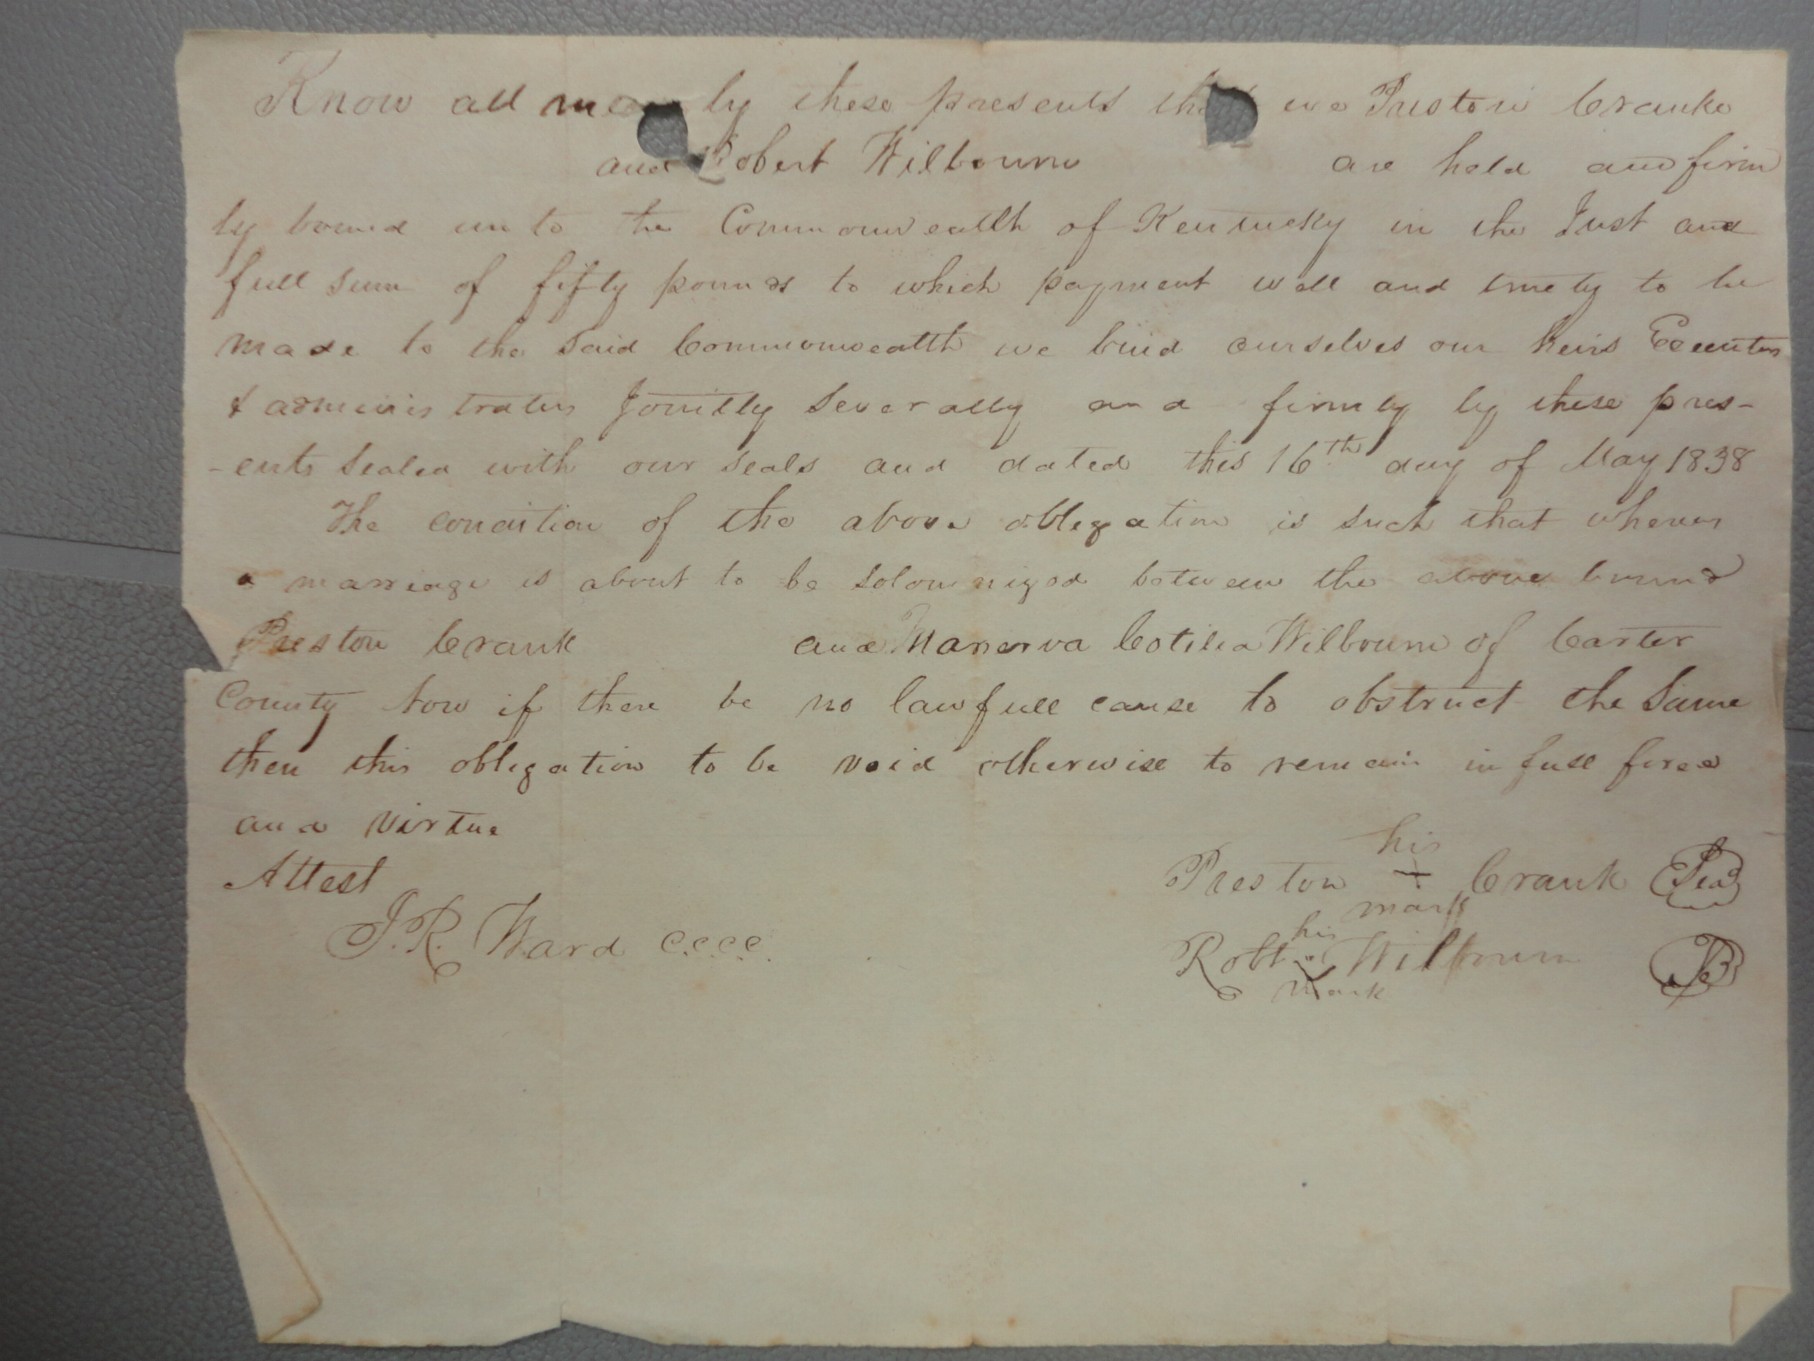 Know all men by these presents that we Preston Cranke
and Robert Wilbourn are held and firm
ly bound unto the Commonwealth of Kentucky in the Just and
full sum of fifty pounds to which payment well and truely to be
made to the said Commonwealth we bind ourselves our heirs Executors
& administrators Jointly Severally and firmly by these pres-
-ents Sealed with our seals and dated this 16th day of May 1838
The condition of the above obligation is such that whereas
a marriage is about to be Solomnized between the above bound
Preston Crank and Manerva Cotilia Wilbourn of Carter
County Now if there be no lawfull cause to obstruct the Same
then this obligation to be void otherwise to remain in full force
and virtue
his
Attest Preston + Crank Seal
mark
his
J. R. Ward C.C.C.C. Robt x Wilbourn
mark